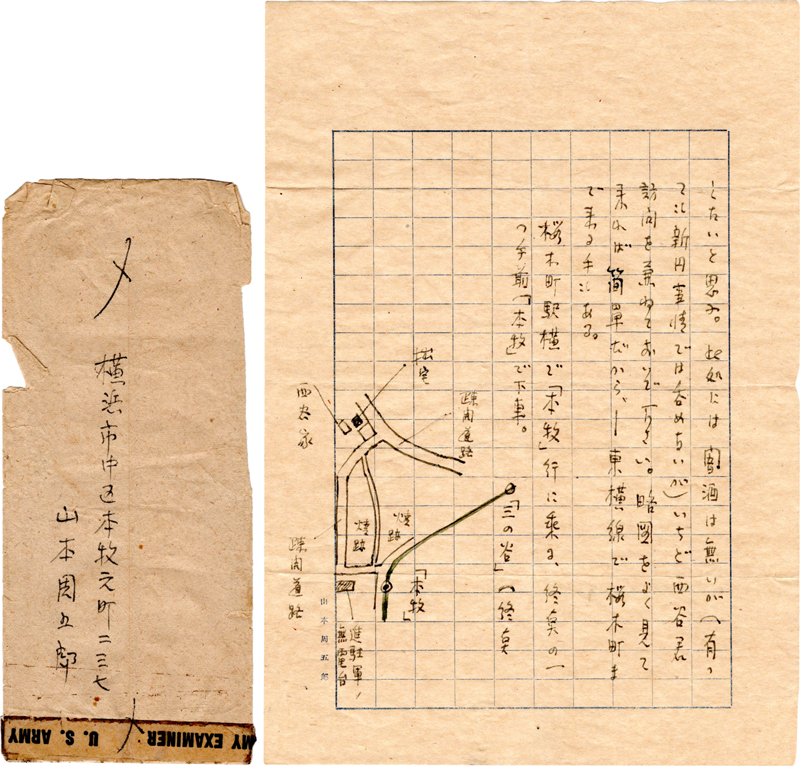 横浜市中区本牧元町二三七
山本周五郎
MY EXAMINER U. S. ARMY
したいと思ふ。此処には 酒は無いが(有つ
ても新円事情では呑めないが)いちど西谷君
訪問を兼ねておいで下さい。略図をよく見て
来れば簡単だから、―東横線で桜木町ま
で来る手もある。
桜木町駅横で「本牧」行に乗る、終点の一
つ手前「本牧」で下車。
拙宅
疎開道路
西谷家
「三の谷」(終点
焼跡
焼跡
「本牧」
疎開道路
進駐軍ノ
無電台
山本周五郎